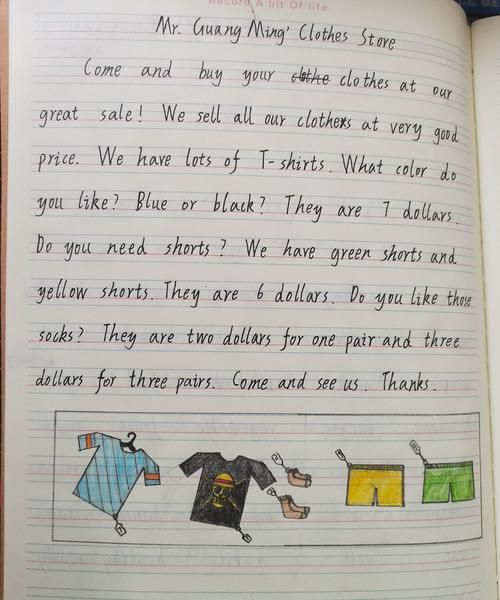 Record A bit Of life
Mr. Guang Ming' Clothes Store
Come and buy your clothe clothes at our
great sale! We sell all our clothers at very good
price. We have lots of T-shirts. What color do
you like? Blue or black? They are 7 dollars.
Do you need shorts? We have green shorts and
yellow shorts. They are 6 dollars. Do you like those
socks? They are two dollars for one pair and three
dollars for three pairs. Come and see us. Thanks.